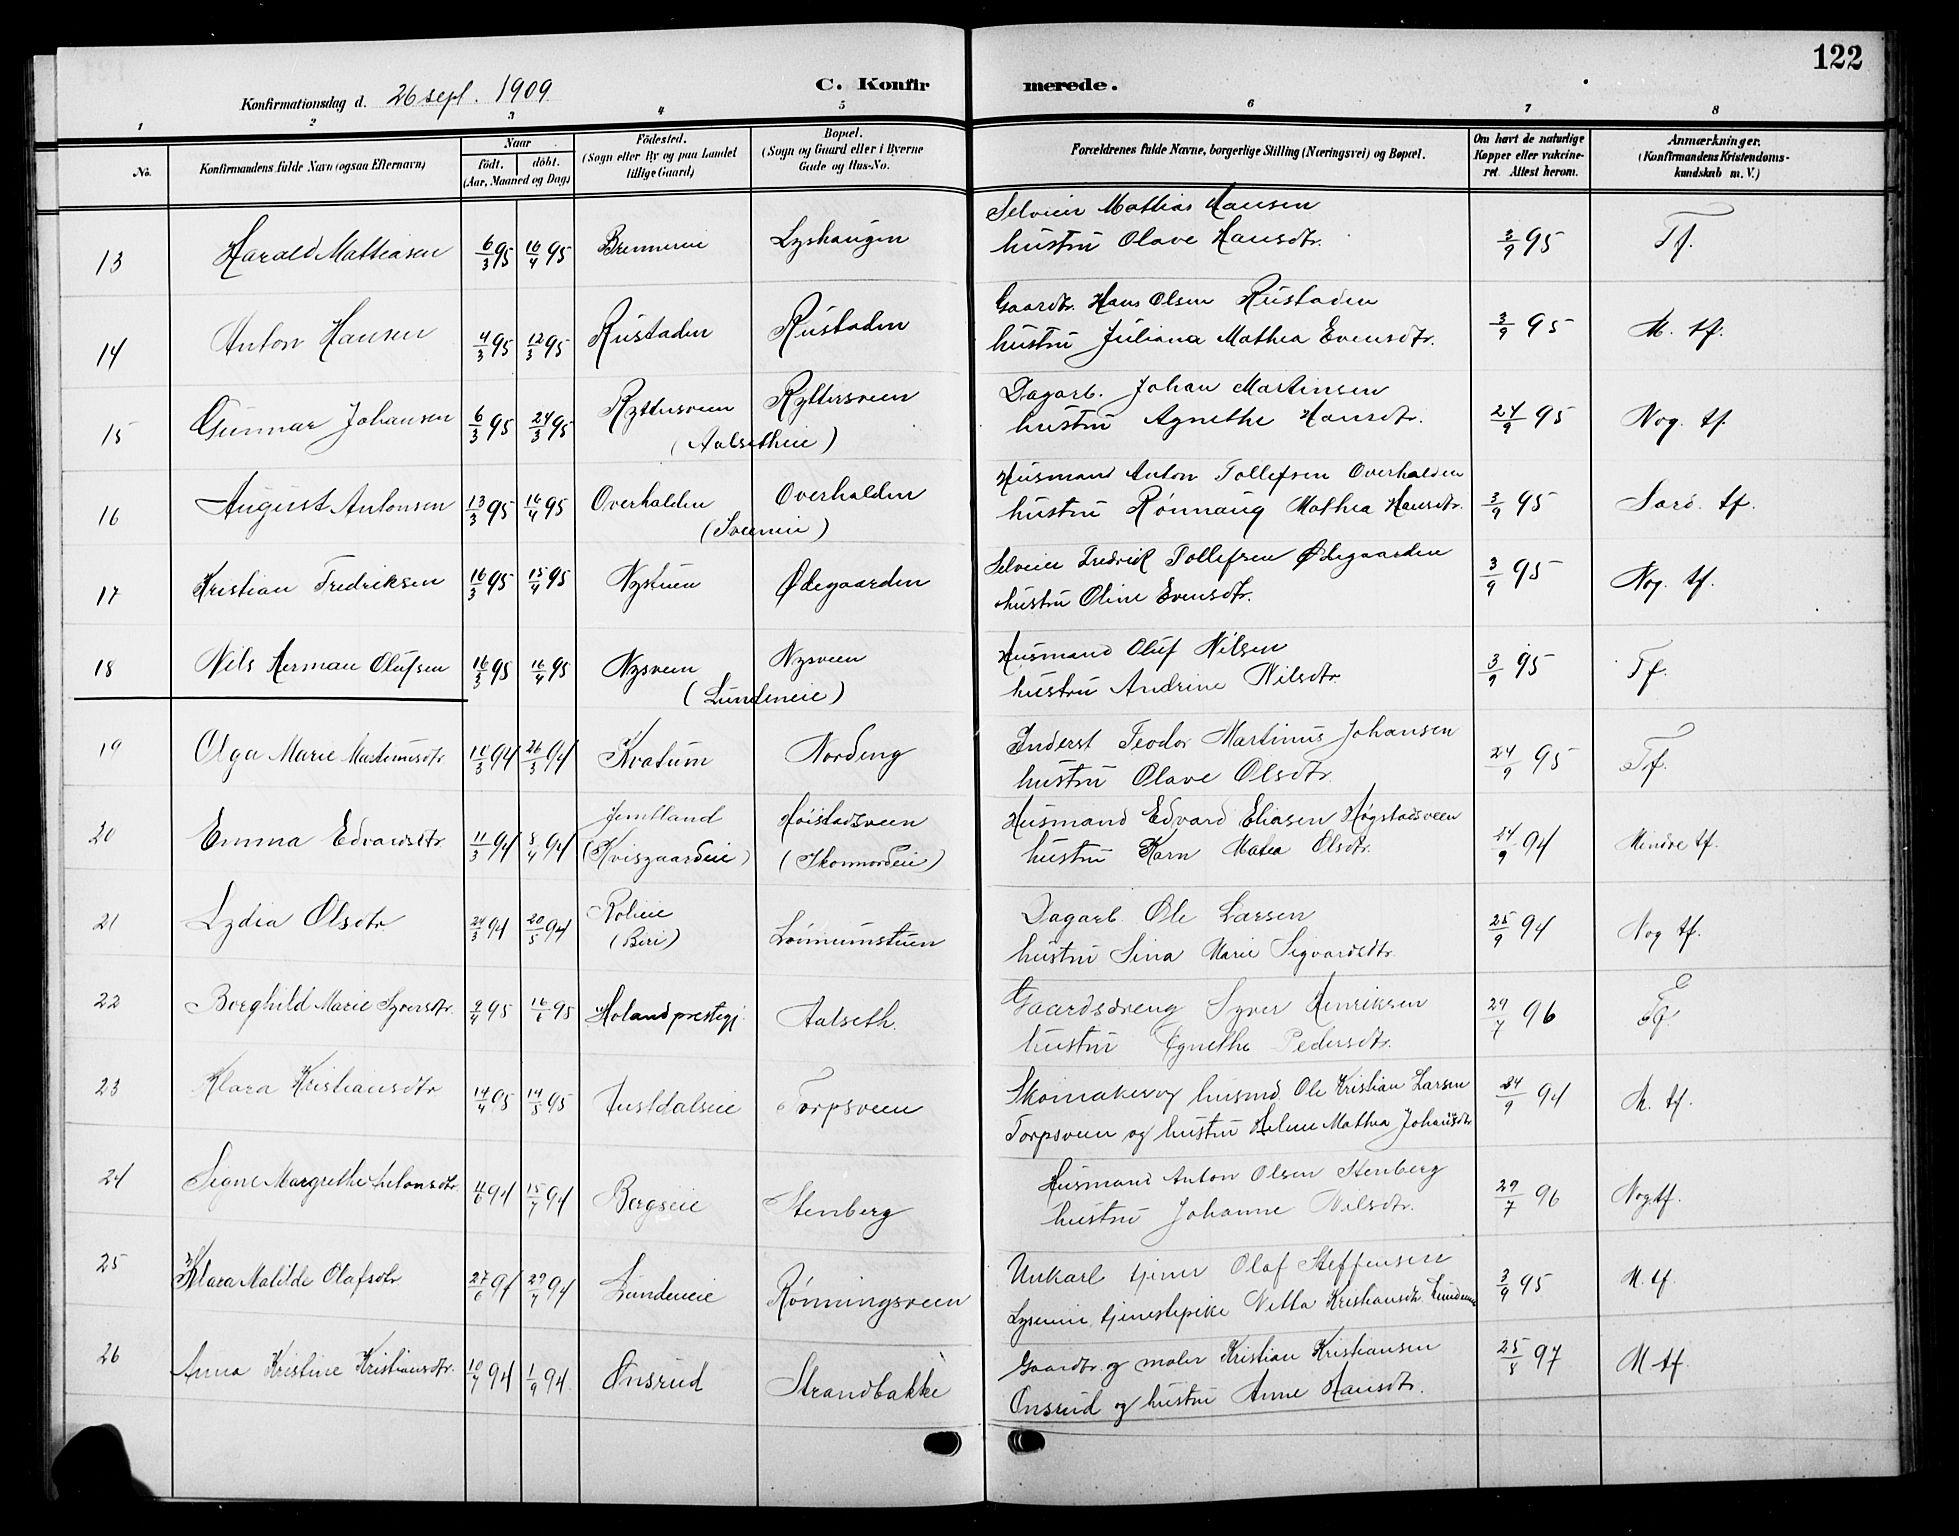 122
Konfirmationsdag d. 26 sept. 1909 C. Konfir merede.
1 2 3 4 5 6 7 8
No. Konfirmandens fulde Navn (ogsaa Efternavn) Naar Födested. Bopæl. Forældrenes fulde Navne, borgerlige Stilling (Næringsvei) og Bopæl. Om havt de naturlige Anmærkninger.
födt. döbt. (Sogn eller By og paa Landet (Sogn og Gaard eller i Byerne Kopper eller vakcine- (Konfirmandens Kristendoms-
(Aar, Maaned og Dag) tillige Gaard) Gade og Hus-No. ret. Attest herom. kundskab m. V.)
Selveier Mathias Hansen
13 Harald Mathiasen 6/3 95 16/4 95 Brennerie Lyshaugen hustru Olave Hansdtr. 3/9 95 Tf.
Gaardbr. Hans Olsen Rustaden
14 Anton Hansen 4/3 95 12/3 95 Rustaden Rustaden hustru Juliana Mathea Evensdtr. 3/9 95 M. tf.
Dagarb. Johan Martinsen
15 Gunnar Johansen 6/3 95 24/3 95 Ryttersveen Ryttersveen hustru Agnethe Hansdtr. 24/9 95 Nog. tf.
(Aalsetheie)
Husmand Anton Tollefsen Overhalden
16 August Antonsen 13/3 95 16/4 95 Overhalden Overhalden hustru Rønnaug Mathea Hansdtr. 3/9 95 Særd. tf.
(Sveneie)
Selveier Fredrik Tollefsen Ødegaarden
17 Kristian Fredriksen 16/3 95 15/4 95 Nystuen Ødegaarden hustru Oline Evensdtr. 3/9 95 Nog. tf.
Husmand Oluf Nilsen
18 Nils Herman Olufsen 16/3 95 16/4 95 Nysveen Nysveen hustru Andrine Nilsdtr. 3/9 95 Tf.
(Lundeneie)
Inderst Teodor Martinus Johansen
19 Olga Marie Martinusdtr 11/3 94 26/3 94 Kvatum Nordeng hustru Olave Olsdtr. 24/9 95 Tf.
Jemtland Høistadsveen Husmand Edvard Eliasen Høgstadsveen
20 Emma Edvardsdtr. 11/3 94 8/4 94 (Kvisgaardeie) (Skonnordeie) hustru Karn Matea Olsdtr. 24/9 94 Mindre tf.
Dagarb. Ole Larsen
21 Lydia Olsdtr 24/3 94 20/5 94 (Biri) Lønnumstuen hustru Sina Marie Sigvardsdtr. 25/9 94 Nog tf.
Gaardsdreng Syver Henriksen
22 Borghild Marie Syversdtr. 9/4 95 16/6 95 Holand prestegj. Aalseth. hustru Agnethe Pedersdtr. 29/7 96 Tf.
Skomaker og husmd. Ole Kristian Larsen
23 Klara Kristiansdtr 14/4 95 14/5 95 Austdalseie Torpsveen Torpsveen og hustru Helene Mathea Johansdtr 24/9 94 M. tf.
Husmand Anton Olsen Stenberg
24 Signe Margrethe Antonsdtr. 11/6 94 15/7 94 Bergseie Stenberg hustru Johanne Nilsdtr. 29/7 96 Nog. tf.
Unkarl tjener Olaf Steffensen
25 Klara Matilde Olafsdtr 27/6 94 29/7 94 Lundeneie Rønningsveen tjenestepike Netta Kristiansdtr. 3/9 95 M. tf.
Gaardbr. og maler Kristian Kristiansen
26 Anna Kristine Kristiansdtr. 10/7 94 1/9 94 Onsrud Strandbakke Onsrud og hustru Anne Hansdtr. 25/8 97 M tf.